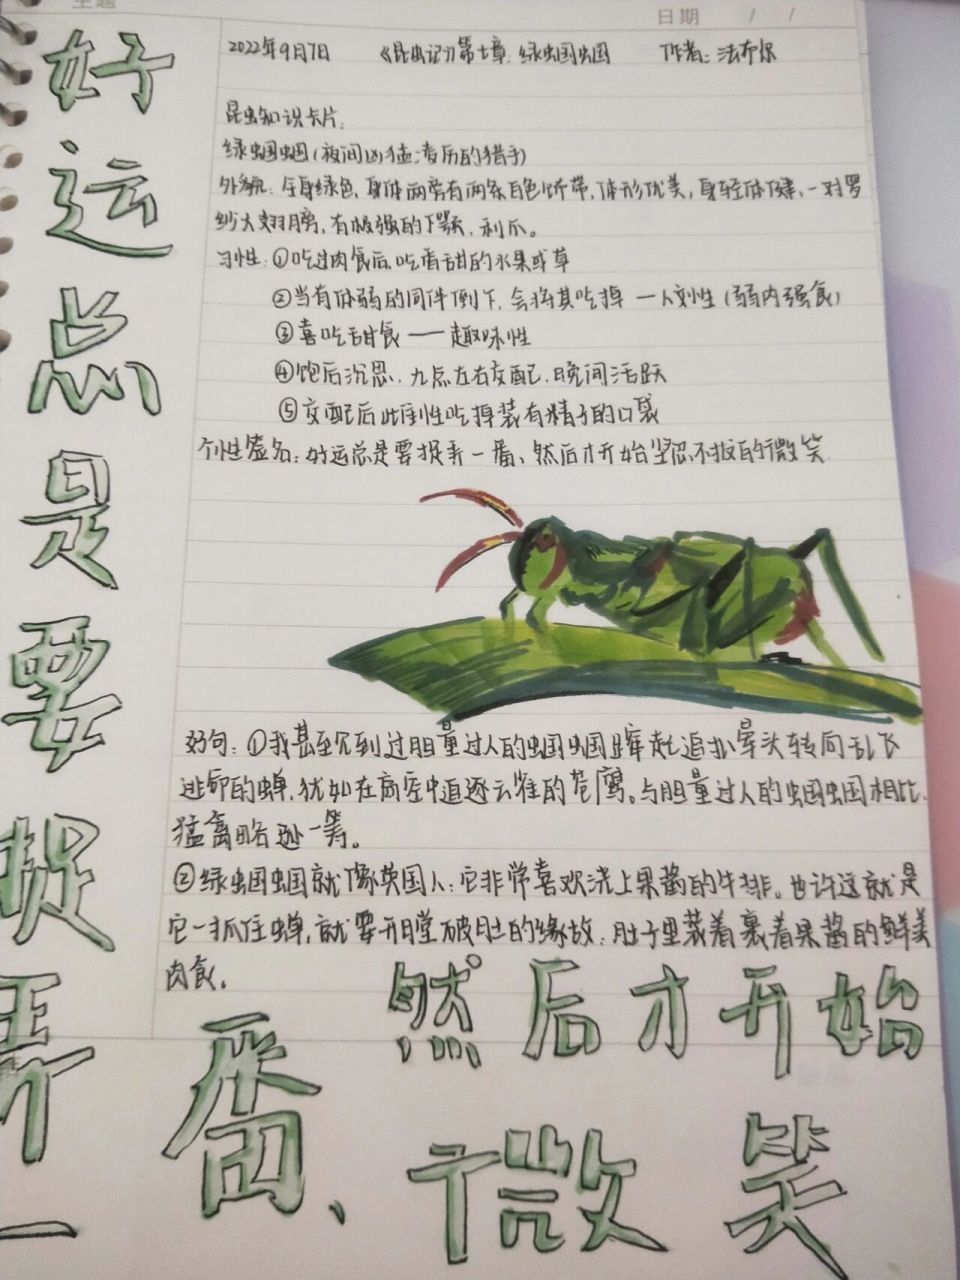 主题
日期 / /
2022年9月7日 《昆虫记》第十章: 绿蝈蝈 作者: 法布尔
昆虫知识卡片:
绿蝈蝈(夜间凶猛
外貌: 全身绿色, 身体两旁有两条白色饰带, 体形优美, 身轻体健, 一对罗
纱大翅膀, 有极强的下颚, 利爪。
习性: ①吃过肉食后, 吃香甜的水果或草
②当有体弱的同伴倒下, 会将其吃掉 (弱肉强食)
③喜吃甜食 —— 趣味性
④饱后沉思, 九点左右交配, 晚间活跃
⑤交配后雌性吃掉装有精子的口袋
个性签名: 好运总是要捉弄一番、然后才开始坚忍不拔的微笑
好句: ①我甚至见到过胆量过人的蝈蝈纵身起追扑晕头转向乱飞
逃命的蝉, 犹如在高空中追逐云雀的苍鹰。与胆量过人的蝈蝈相比,
猛禽略逊一筹。
②绿蝈蝈就像英国人: 它非常喜欢浇上果酱的牛排。也许这就是
它一抓住蝉, 就要开膛破肚的缘故, 肚子里装着裹着果酱的鲜美
肉食。
好运总是要捉弄一
番、然后才开始
微笑